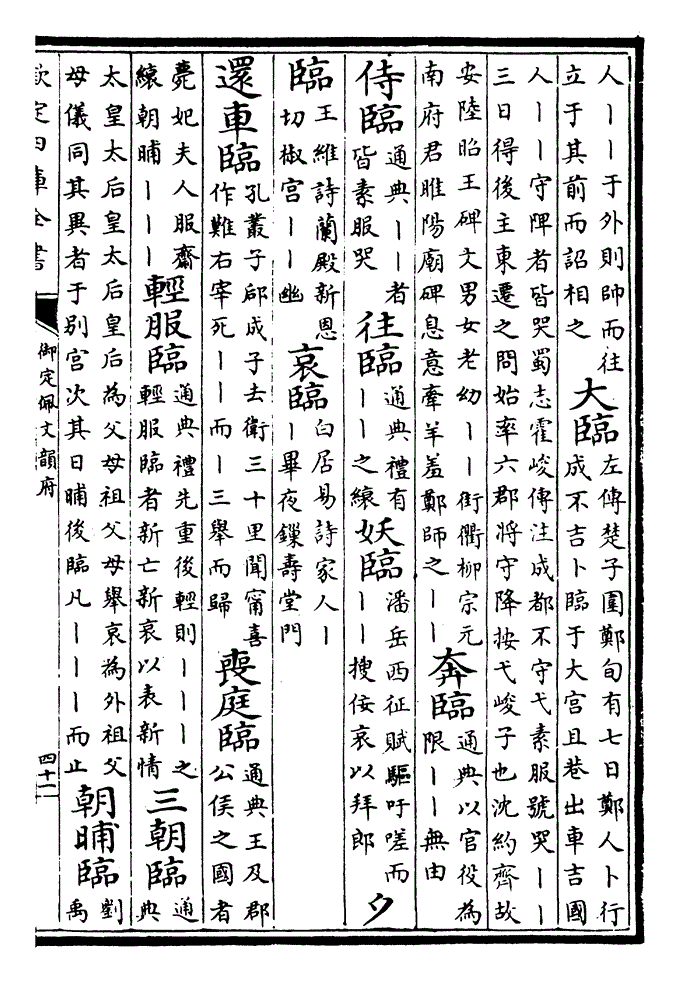 人丨丨于外則師而往
立于其前而詔相之
大臨
左傳楚子圍鄭旬有七日鄭人卜行
成不吉卜臨于大宫且巷出車吉國
人丨丨守陴者皆哭蜀志霍峻傳注成都不守弋素服號哭丨丨
三日得後主東遷之問始率六郡將守降按弋峻子也沈約齊故
安陸昭王碑文男女老幼丨丨街衢柳宗元
南府君睢陽廟碑息意牽羊羞鄭師之丨丨
奔臨
通典以官役為
限丨丨無由
侍臨
通典丨丨者
皆素服哭
往臨
通典禮有
丨丨之縗
妖臨
潘岳西征賦驅吁嗟而
丨丨搜佞哀以拜郎
夕
臨
王維詩蘭殿新恩
切椒宫丨丨幽
哀臨
白居易詩家人丨
丨畢夜鏁壽堂門
還車臨
孔叢子郈成子去衛三十里聞甯喜
作難右宰死丨丨而丨三舉而歸
喪庭臨
通典王及郡
公侯之國者
薨妃夫人服齋
縗朝晡丨丨丨
輕服臨
通典禮先重後輕則丨丨丨之
輕服臨者新亡新哀以表新情
三朝臨
通
典
太皇太后皇太后皇后為父母祖父母舉哀為外祖父
母儀同其異者于别宫次其日晡後臨凡丨丨丨而止
朝晡臨
劉
禹
欽定四庫全書
御定佩文韻府
四十二